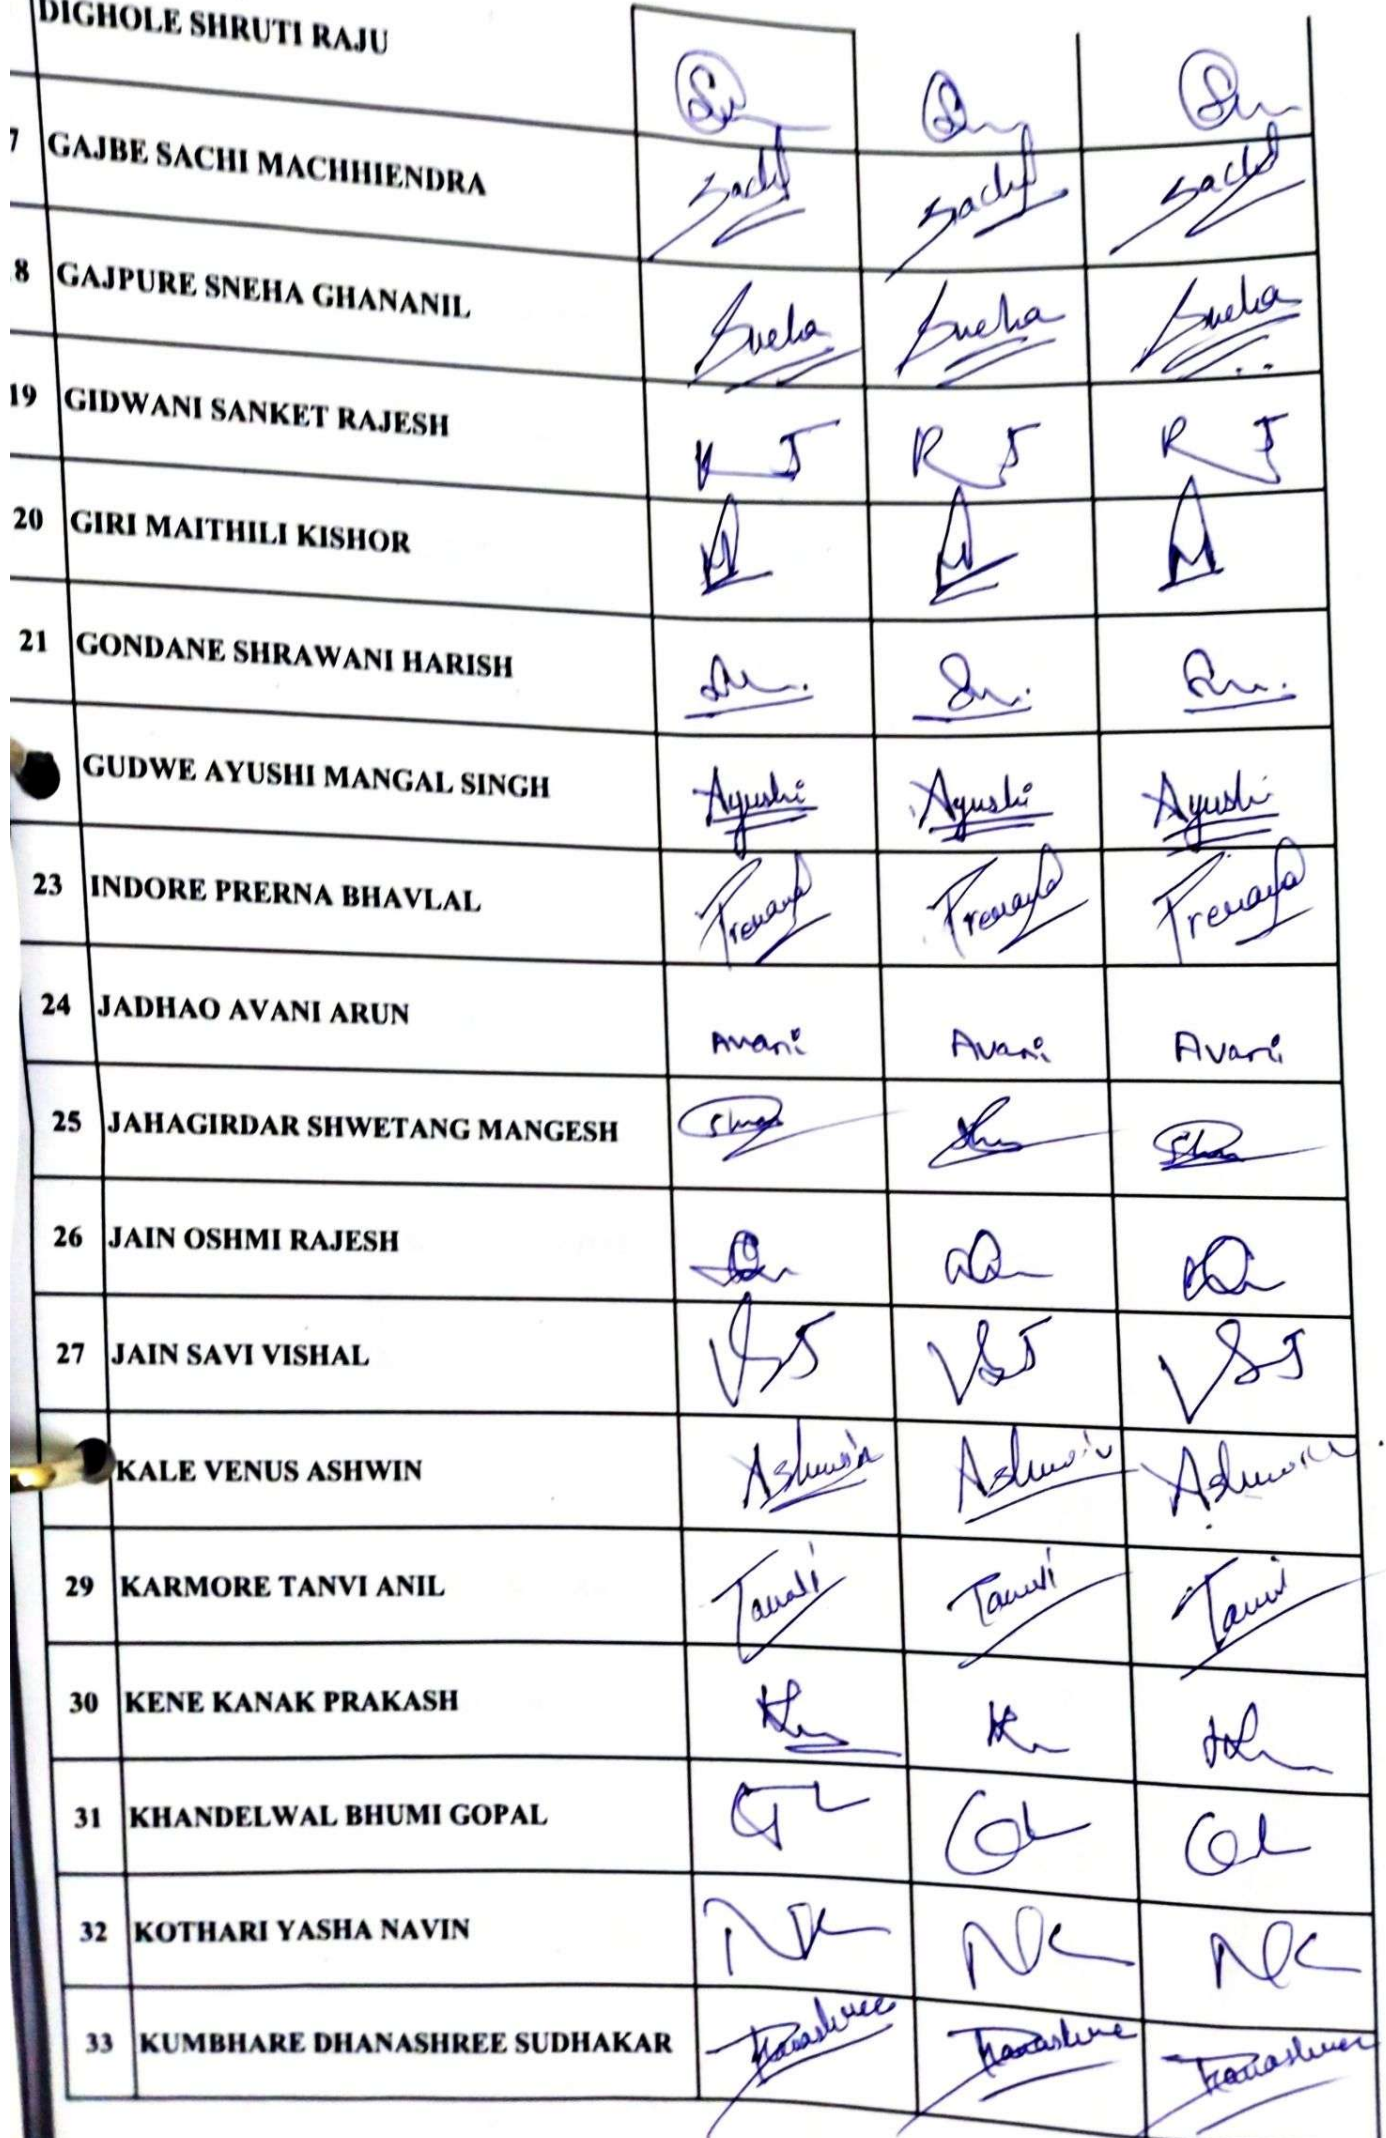 DIGHOLE SHRUTI RAJU
7 GAJBE SACHI MACHHIENDRA Sachi Sachi Sachi
8 GAJPURE SNEHA GHANANIL Sneha Sneha Sneha
19 GIDWANI SANKET RAJESH R J R J R J
20 GIRI MAITHILI KISHOR
21 GONDANE SHRAWANI HARISH
GUDWE AYUSHI MANGAL SINGH Ayushi Ayushi Ayushi
23 INDORE PRERNA BHAVLAL
24 JADHAO AVANI ARUN Avani Avani Avani
25 JAHAGIRDAR SHWETANG MANGESH
26 JAIN OSHMI RAJESH
27 JAIN SAVI VISHAL VSJ VSJ VSJ
KALE VENUS ASHWIN Ashwin Ashwin Ashwin
29 KARMORE TANVI ANIL Tanvi Tanvi Tanvi
30 KENE KANAK PRAKASH
31 KHANDELWAL BHUMI GOPAL
32 KOTHARI YASHA NAVIN NK NK NK
33 KUMBHARE DHANASHREE SUDHAKAR